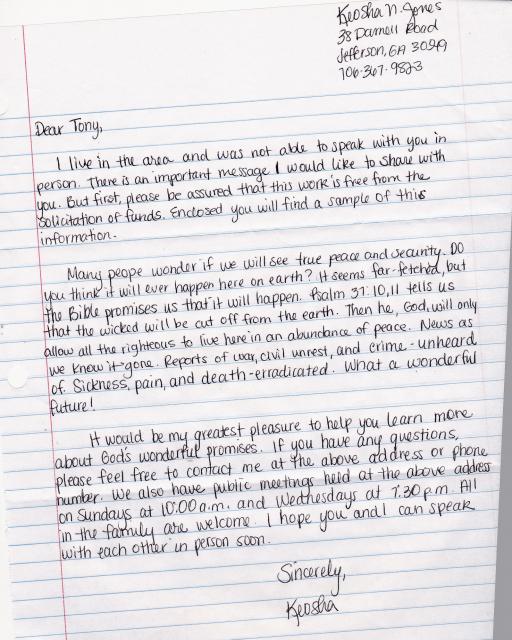 Keosha N. Jones
38 Darnell Road
Jefferson, GA 30549
706-367-9823
Dear Tony,
I live in the area and was not able to speak with you in
person. There is an important message I would like to share with
you. But first, please be assured that this work is free from the
solicitation of funds. Enclosed you will find a sample of this
information.
Many peope wonder if we will see true peace and security. Do
you think it will ever happen here on earth? It seems far-fetched, but
the Bible promises us that it will happen. Psalm 37:10,11 tells us
that the wicked will be cut off from the earth. Then he, God, will only
allow all the righteous to live here in an abundance of peace. News as
we know it-gone. Reports of war, civil unrest, and crime-unheard
of. Sickness, pain, and death-erradicated. What a wonderful
future!
It would be my greatest pleasure to help you learn more
about God's wonderful promises. If you have any questions,
please feel free to contact me at the above address or phone
number. We also have public meetings held at the above address
on Sundays at 10:00 a.m. and Wednesdays at 7:30 p.m. All
in the family are welcome. I hope you and I can speak
with each other in person soon.
Sincerely,
Keosha